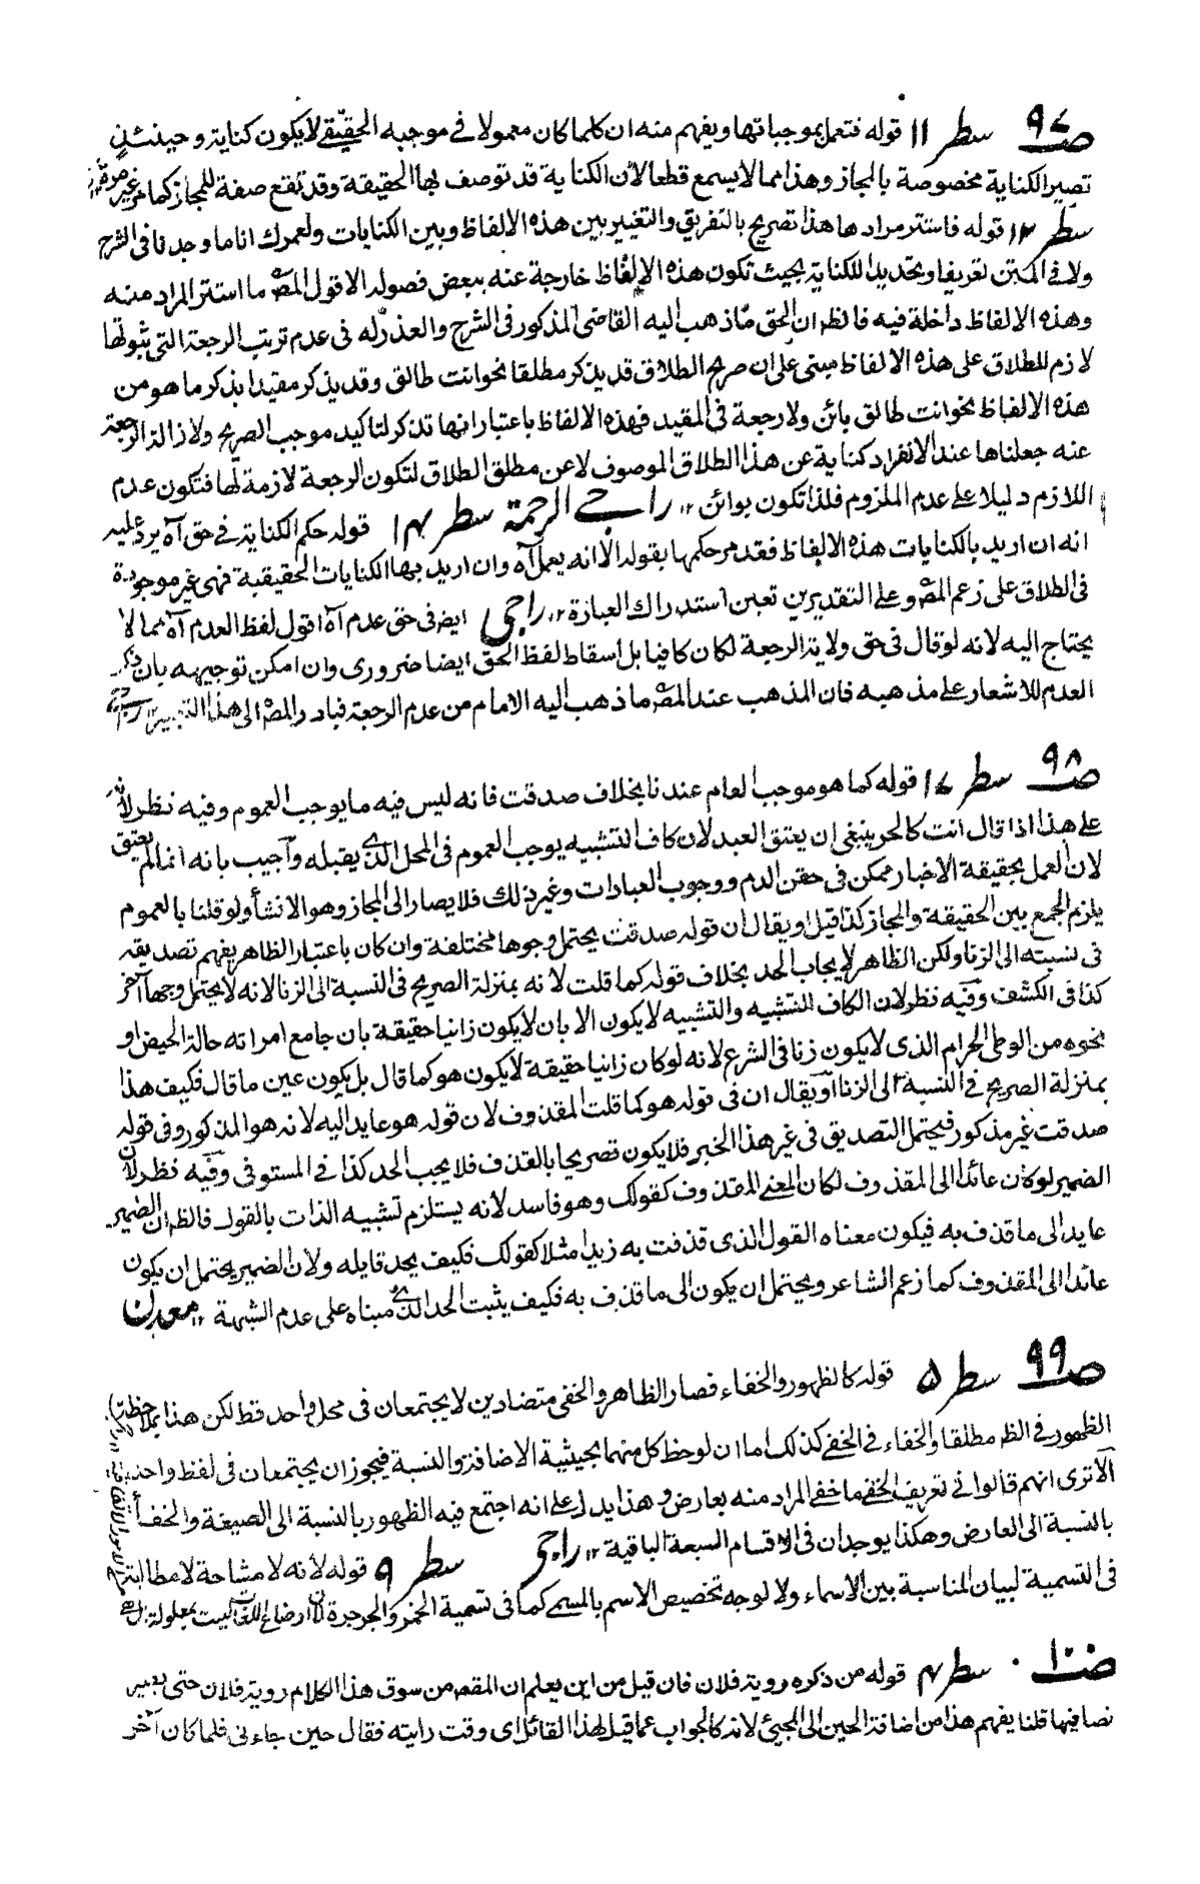 صـ٩٧ سطر ١١ قوله فتعمل بموجباتها ويفهم منه ان كلما كان معمولا فى موجبه الحقيقے لايكون كناية وحينئذٍ
تصير الكناية مخصوصة بالمجاز وهذا مما لا يسمع قطعا لان الكناية قد توصف بها الحقيقة وقد تقع صفة للمجاز كما مر غير مرة
سطر ١٢ قوله فاستتر مرادها هذا تصريح بالتفريق والتغيير بين هذه الالفاظ وبين الكنايات ولعمرك انا ما وجدنا فى الشرح
ولا فے المتن تعريفا وتحديدا للكناية بحيث تكون هذه الالفاظ خارجة عنه ببعض فصوله الا قول المصـ ما استتر المراد منه
وهذه الالفاظ داخلة فيه فالظـ ان الحق ما ذهب اليه القاضى المذكور فى الشرح والعذر له فى عدم ترتب الرجعة التى ثبوتها
لازم للطلاق على هذه الالفاظ مبنى على ان صريح الطلاق قد يذكر مطلقا نحو انت طالق وقد يذكر مقيدا بذكر ما هو من
هذه الالفاظ نحو انت طالق بائن ولا رجعة فى المقيد فهذه الالفاظ باعتبار انها تذكر لتاكيد موجب الصريح ولازالة الرجعة
عنه جعلناها عند الانفراد كناية عن هذا الطلاق الموصوف لا عن مطلق الطلاق لتكون الرجعة لازمة لها فتكون عدم
اللازم دليلا على عدم الملزوم فلذا تكون بوائن ١٢ راجے الرحمة سطر ١٤ قوله حكم الكناية فى حق آه يرد عليه
انه ان اريد بالكنايات هذه الالفاظ فقد مر حكمها بقوله الا انه يعمل آه وان اريد بها الكنايات الحقيقية فهى غير موجودة
فى الطلاق على زعم المصـ وعلى التقديرين تعين استدراك العبارة ١٢ راجى ايضـ فى حق عدم آه اقول لفظ العدم آه مما لا
يحتاج اليه لانه لو قال فى حق ولاية الرجعة لكان كافيا بل اسقاط لفظ الحق ايضا ضرورى وان امكن توجيهه بان ذكر
العدم للاشعار على مذهبه فان المذهب عند المصـ ما ذهب اليه الامام من عدم الرجعة فبادر المصـ الى هذا التعبير
صـ٩٨ سطر ١٧ قوله كما هو موجب العام عندنا بخلاف صدقت فانه ليس فيه ما يوجب العموم وفيه نظر لانه
على هذا اذا قال انت كالحر ينبغى ان يعتق العبد لان كاف التشبيه يوجب العموم فى المحل الذے يقبله وآجيب بانه انما لم يعتق
لان العمل بحقيقة الاخبار ممكن فى حقن الدم ووجوب العبادات وغير ذلك فلا يصار الى المجاز وهو الانشأ ولو قلنا بالعموم
يلزم الجمع بين الحقيقة والمجاز كذا قيل او يقال ان قوله صدقت يحتمل وجوها مختلفة وان كان باعتبار الظاهر يفهم تصديقه
فى نسبته الى الزنا ولكن الظاهر لايجاب الحد بخلاف قوله كما قلت لانه بمنزلة الصريح فى النسبة الى الزنا لانه لا يحتمل وجها آخر
كذا فى الكشف وفيه نظر لان الكاف للتشبيه والتشبيه لا يكون الا بان لا يكون زانيا حقيقة بان جامع امراته حالة الحيض او
نحوه من الوطى الحرام الذى لا يكون زنا فى الشرع لانه لو كان زانيا حقيقة لا يكون هو كما قال بل يكون عين ما قال فكيف هذا
بمنزلة الصريح فى النسبة الى الزنا آو يقال ان فى قوله هو كما قلت المقذوف لان قوله هو عايد اليه لانه هو المذكور وفى قوله
صدقت غير مذكور فيحتمل التصديق فى غير هذا الخبر فلا يكون تصريحا بالقذف فلا يجب الحد كذا فے المستوفى وفيه نظر لان
الضمير لو كان عائدا الى المقذوف لكان المعنے المقذوف كقولك وهو فاسد لانه يستلزم تشبيه الذات بالقول فالظـ ان الضمير
عايد الى ما قذف به فيكون معناه القول الذى قذفت به زيدا مثلا كقولك فكيف يحد قايله ولان الضمير يحتمل ان يكون
عائدا الى المقذوف كما زعم الشاعر ويحتمل ان يكون الى ما قذف به فكيف يثبت الحد الذے مبناه على عدم الشبهة ١٢ معدن
صـ٩٩ سطر ٥ قوله كالظهور والخفاء فصار الظاهر والخفى متضادين لا يجتمعان فى محل واحد قط لكن هذا بملاحظة
الظهور فے الظـ مطلقا والخفاء فے الخفے كذلك اما ان لوحظ كل منهما بحيثية الاضافة والنسبة فيجوز ان يجتمعان فى لفظ واحد
الآ ترى انهم قالوا فے تعريف الخفے ما خفے المراد منه بعارض وهذا يدل على انه اجتمع فيه الظهور بالنسبة الى الصيغة والخفأ
بالنسبة الى العارض وهكذا يوجدان فى الاقسام السبعة الباقية ١٢ راجى سطر ٩ قوله لانه لا مشاحة لا مطالبة
فى التسمية لبيان المناسبة بين الاسماء ولا لوجه تخصيص الاسم بالمسمے كما فى تسمية الخمر والجرجرة لان اوضاع اللغات ليست بمعلولة
صـ١٠٠ سطر ٤ قوله من ذكره روية فلان فان قيل من اين يعلم ان المقصـ من سوق هذا الكلام روية فلان حتى يعبر
نصا فيها قلنا يفهم هذا من اضافة الحين الى المجيئ لانه كالجواب عما قيل لهذا القائل اى وقت رايته فقال حين جاءنى فلما كان آخر